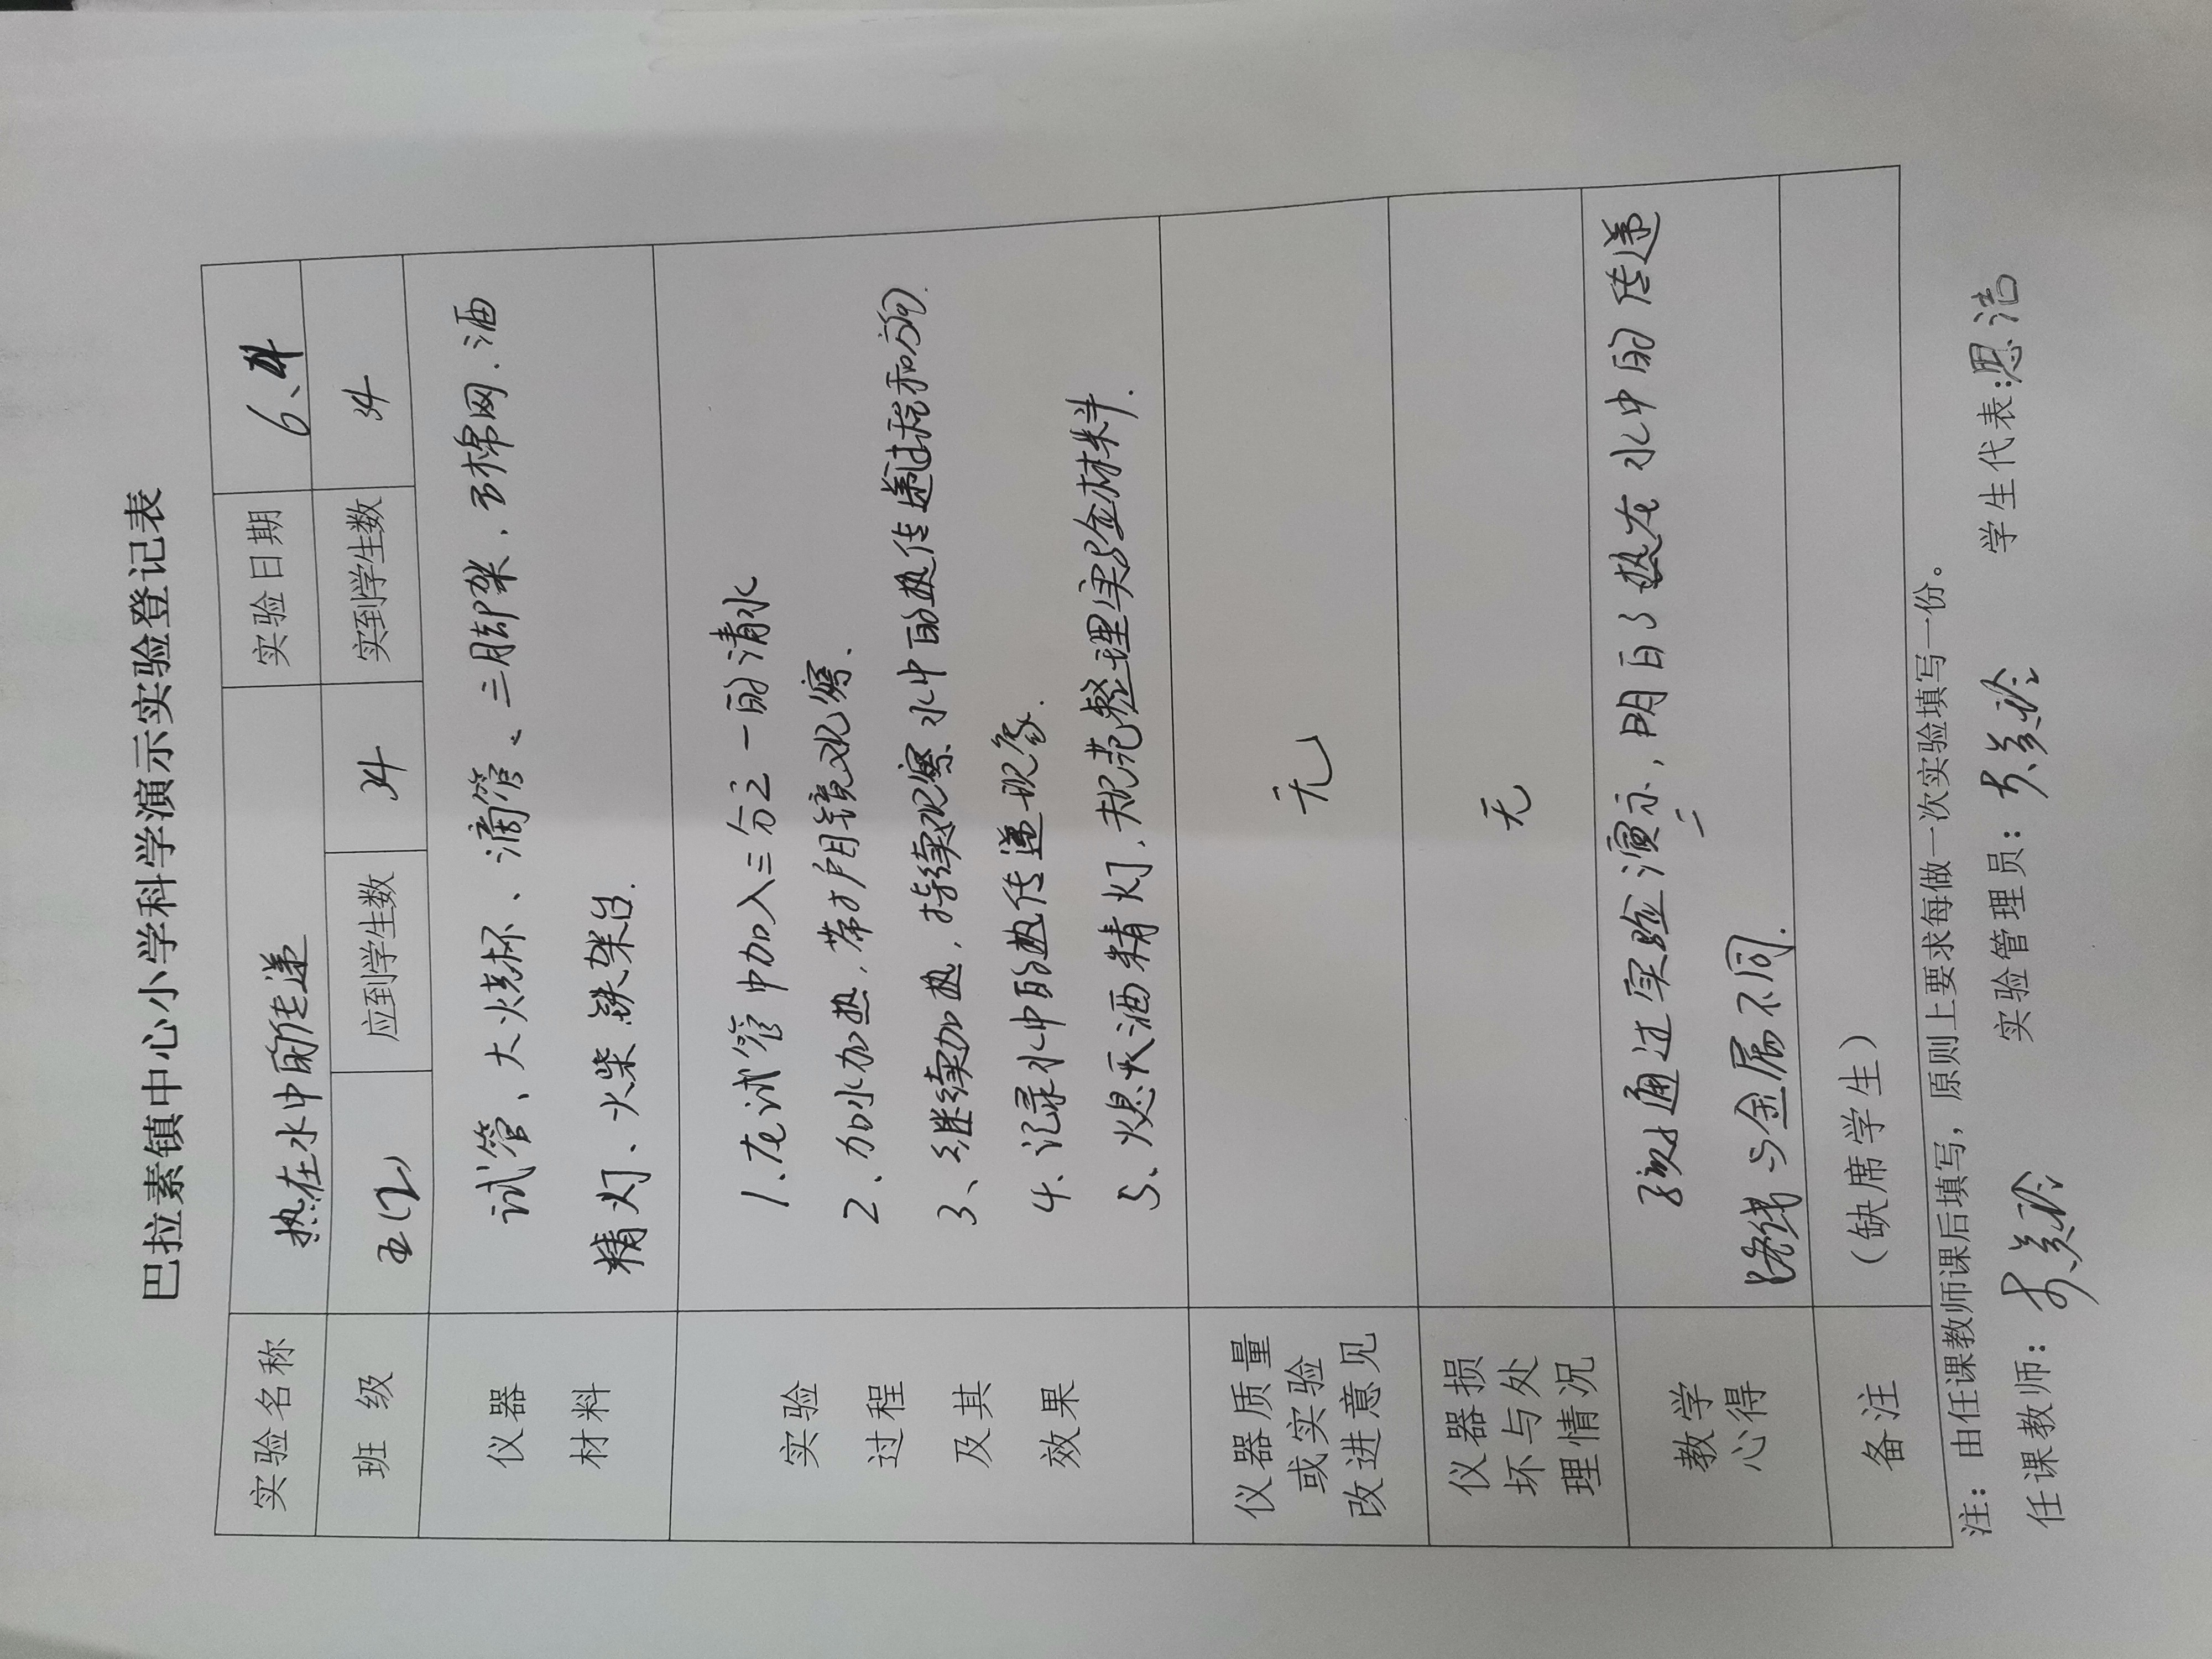 巴拉素镇中心小学科学演示实验登记表
实验名称 热在水中的传递 实验日期 6、4
班 级 五(2) 应到学生数 34 实到学生数 34
仪器 试管、大烧杯、滴管、三脚架、石棉网、酒
材料 精灯、火柴、铁架台.
实验 1.在试管中加入三分之一的清水
过程 2、加水加热,带护目镜观察、
及其 3、继续加热,持续观察水中的热传递过程和方向.
效果 4、记录水中的热传递现象.
5、熄灭酒精灯,规范整理实验材料.
仪器质量
或实验 无
改进意见
仪器损
坏与处 无
理情况
教学 通过实验演示,明白了热在水中的传递
心得 路线与金属不同.
备注 (缺席学生)
注:由任课教师课后填写,原则上要求每做一次实验填写一份。
任课教师: 实验管理员: 学生代表:思洁